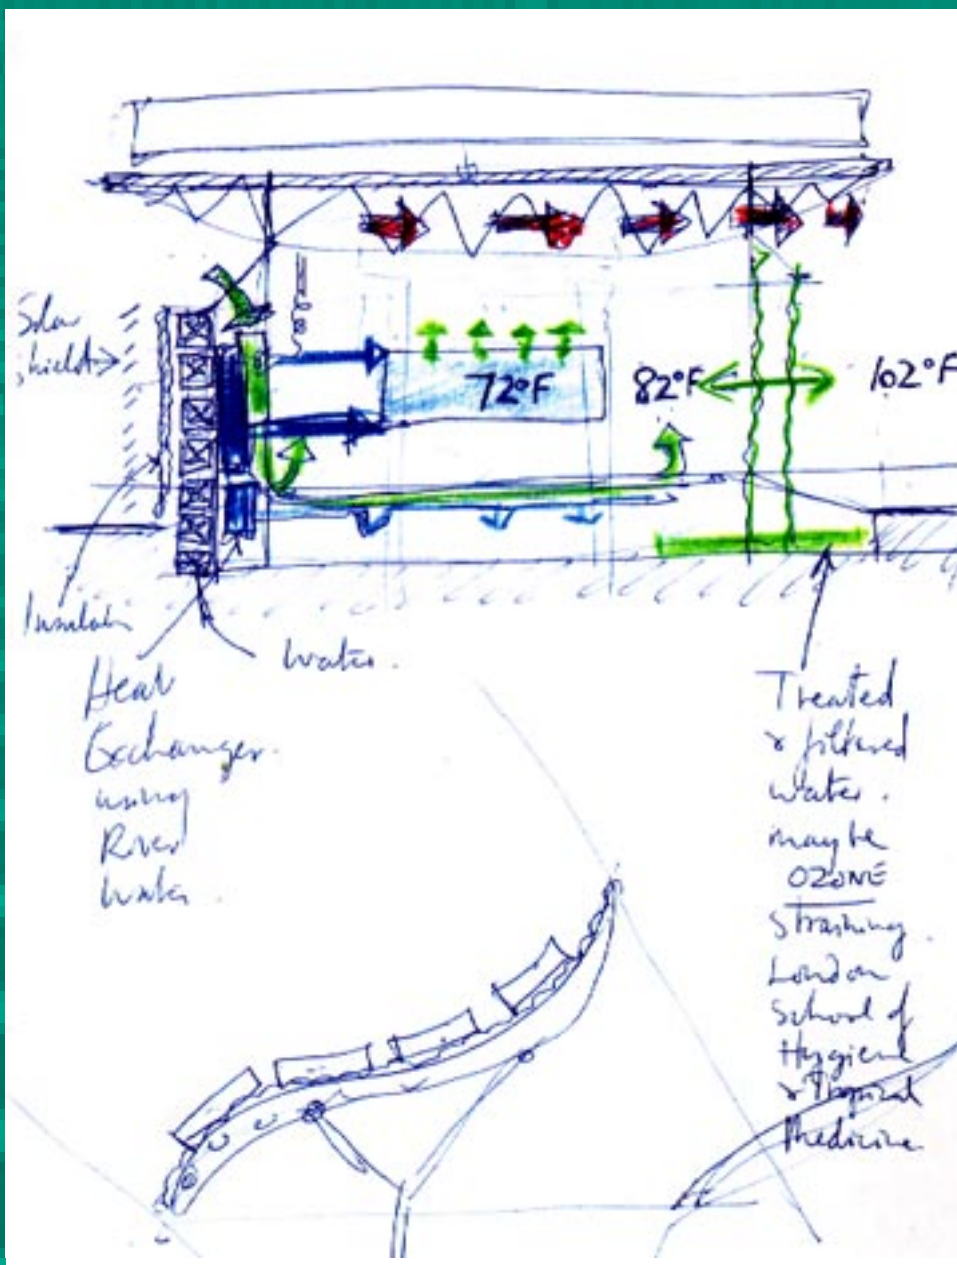 Solar
shield
72°F
82°F
102°F
Insulation
Heat
Exchanger
using
River
water.
water.
Treated
& filtered
water.
maybe
OZONE
London
School of
Hygiene
& Tropical
Medicine